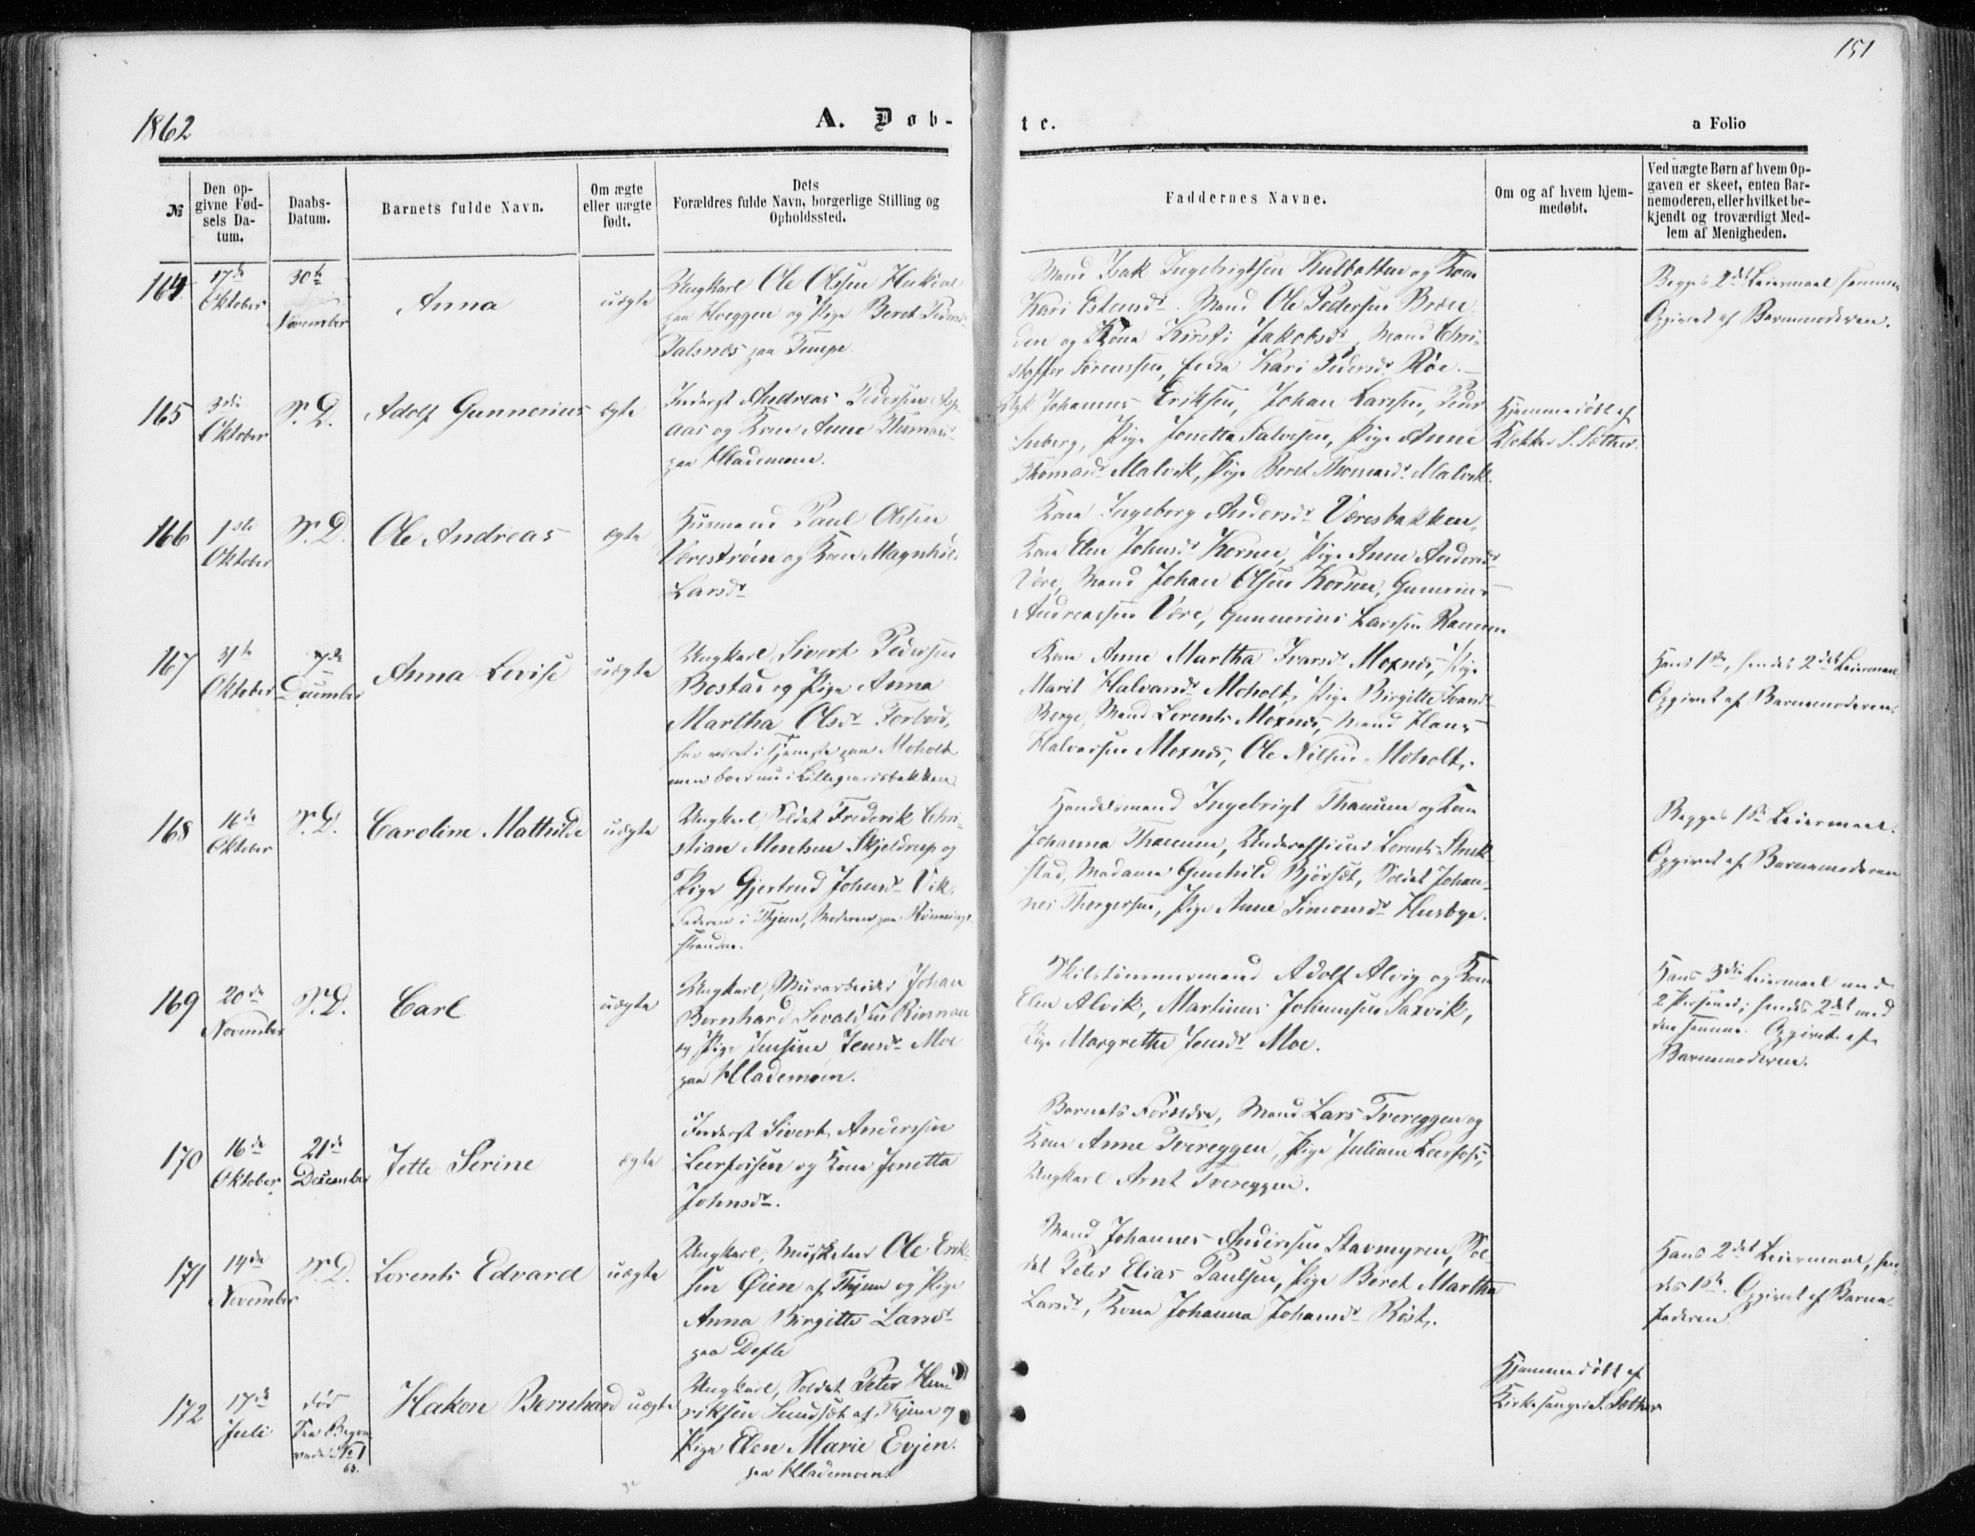 151
1862
A. Døb-
te.
a Folio
№
Den op-
givne Fød-
sels Da-
tum.
Daabs-
Datum.
Barnets fulde Navn.
Om ægte
eller uægte
født.
Dets
Forældres fulde Navn, borgerlige Stilling og
Opholdssted.
Faddernes Navne.
Om og af hvem hjem-
medøbt.
Ved uægte Børn af hvem Op-
gaven er skeet, enten Bar-
nemoderen, eller hvilket be-
kjendt og troværdigt Med-
lem af Menigheden.
164
17de
Oktober
30te
November
Anna
uægte
Ungkarl Ole Olssen
paa Hoeggen og Pige Beret Peders-
Talsnes paa Tempe.
Mand Isak Ingebrigtsen Kulbotten og Kone
Kari Estensdr. Mand Ole Pedersen Bræn-
den og Kone Kirsti Jakobsdr, Mand Chri-
stoffer Sørenssen, Enke Kari Pedersdr Røe.
Begges 2det Leiermaal sammen
Opgivet af Barnemoderen.
165
3die
Oktober
S. D.
Adolf Gunnerius
ægte
Inderst Andreas Pedersen Asp-
aas og Kone Anne Thomasdr
paa Hlademoen.
Johannes Eriksen, Johan Larssen,
Pige Jonetta Salvesen, Pige Anne
Thomasdr Malvik, Pige Beret Thomasdr Malvik.
Hjemmedøbt af
Klokker S. Sæther.
166
1ste
Oktober
S. D.
Ole Andreas
ægte
Husmand Paul Olssen
Værestrøen og Kone Magnhild
Larsdr
Kone Ingeborg Andersdr Væresbakken,
Kone Elen Johnsdr Korsnes, Pige Anne Andersdr
Være, Mand Johan Olsen Korsnes, Gunnerius
Andreassen Være, Gunnerius Larssen Ranum
167
31te
Oktober
7de
December
Anna Lovise
uægte
Ungkarl Sivert Pedersen
Bostad og Pige Anna
Martha Olsdr Forbord,
har været i Tjeneste paa Moholt
men boer nu i Lillegaardsbakken
Kone Anne Martha Ivarsdr Moxnes, Pige
Marit Halvorsdr Moholt, Pige Birgitte Ivarsdr
Berge, Mand Lorents Moxnes, Mand Hans
Halvorsen Moxnes, Ole Nilsen Moholt.
Hans 1ste, hendes 2det Leiermaal
Opgivet af Barnemoderen.
168
16de
Oktober
S. D.
Caroline Mathilde
uægte
Ungkarl Soldat Frederik Chri-
stian Mentsen Skjeldrup og
Pige Gjertrud Johnsdr Vik,
Faderen i Thjem, Moderen paa Rønnings-
stranden.
Handelsmand Ingebrigt Thanum og Kone
Johanna Thanum, Underofficer Lorents
stad, Madame Gunhild Bjørset, Soldat Johan-
nes Thorgersen, Pige Anne Simonsdr Husbye.
Begges 1ste Leiermaal.
Opgivet af Barnemoderen
169
20de
November
S. D.
Carl
uægte
Ungkarl, Murarbeider Johan
Bernhard Sevaldsen Rinnan
og Pige Jensine Jensdr Moe
paa Hlademoen.
Skibstømmermand Adolf Alvig og Kone
Elen Alvik, Martinus Johnnsen Saxvik,
Pige Margrethe Jensdr Moe.
Hans 3die Leiermaal med
2 Personer; hendes 2det med
den samme. Opgivet af
Barnemoderen.
170
16de
Oktober
21de
December
Jette Serine
ægte
Inderst Sivert Anderssen
Leerfoisen og Kone Jonetta
Johnsdr.
Barnets Forældre, Mand Lars Tvereggen og
Kone Anne Tvereggen, Pige Juliane Leerfoss,
Ungkarl Arnt Tvereggen.
171
14de
November
S. D.
Lorents Edvard
uægte
Ungkarl, Musketeer Ole Erik-
sen Øien af Thjem og Pige
Anna Birgitte Larsdr
paa Defle
Mand Johannes Anderssen Stavmyren, Sol-
dat Peter Elias Paulsen, Pige Beret Martha
Larsdr, Kone Johanna Johansdr Røst.
Hans 2det Leiermaal, hen-
des 1ste. Opgivet af Barne-
faderen.
172
17de
Juli
død
See Begra-
vede No 1
63.
Hakon Bernhard
uægte
Ungkarl, Soldat Peter Hen-
riksen Sundset af Thjem og
Pige Elen Marie Evjen.
paa Hlademoen
Hjemmedøbt af
Kirkesanger S. Sæther